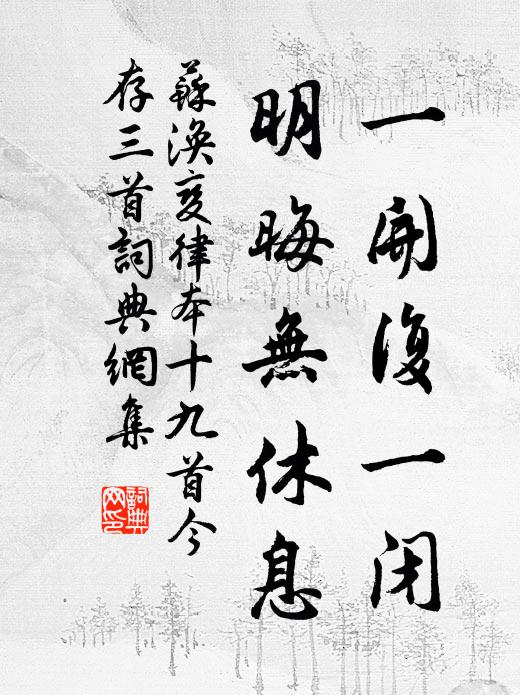 一開復一闭
明晦無休息
蘇渙變律本十九首今
存三首詞典網集
詞典
网印